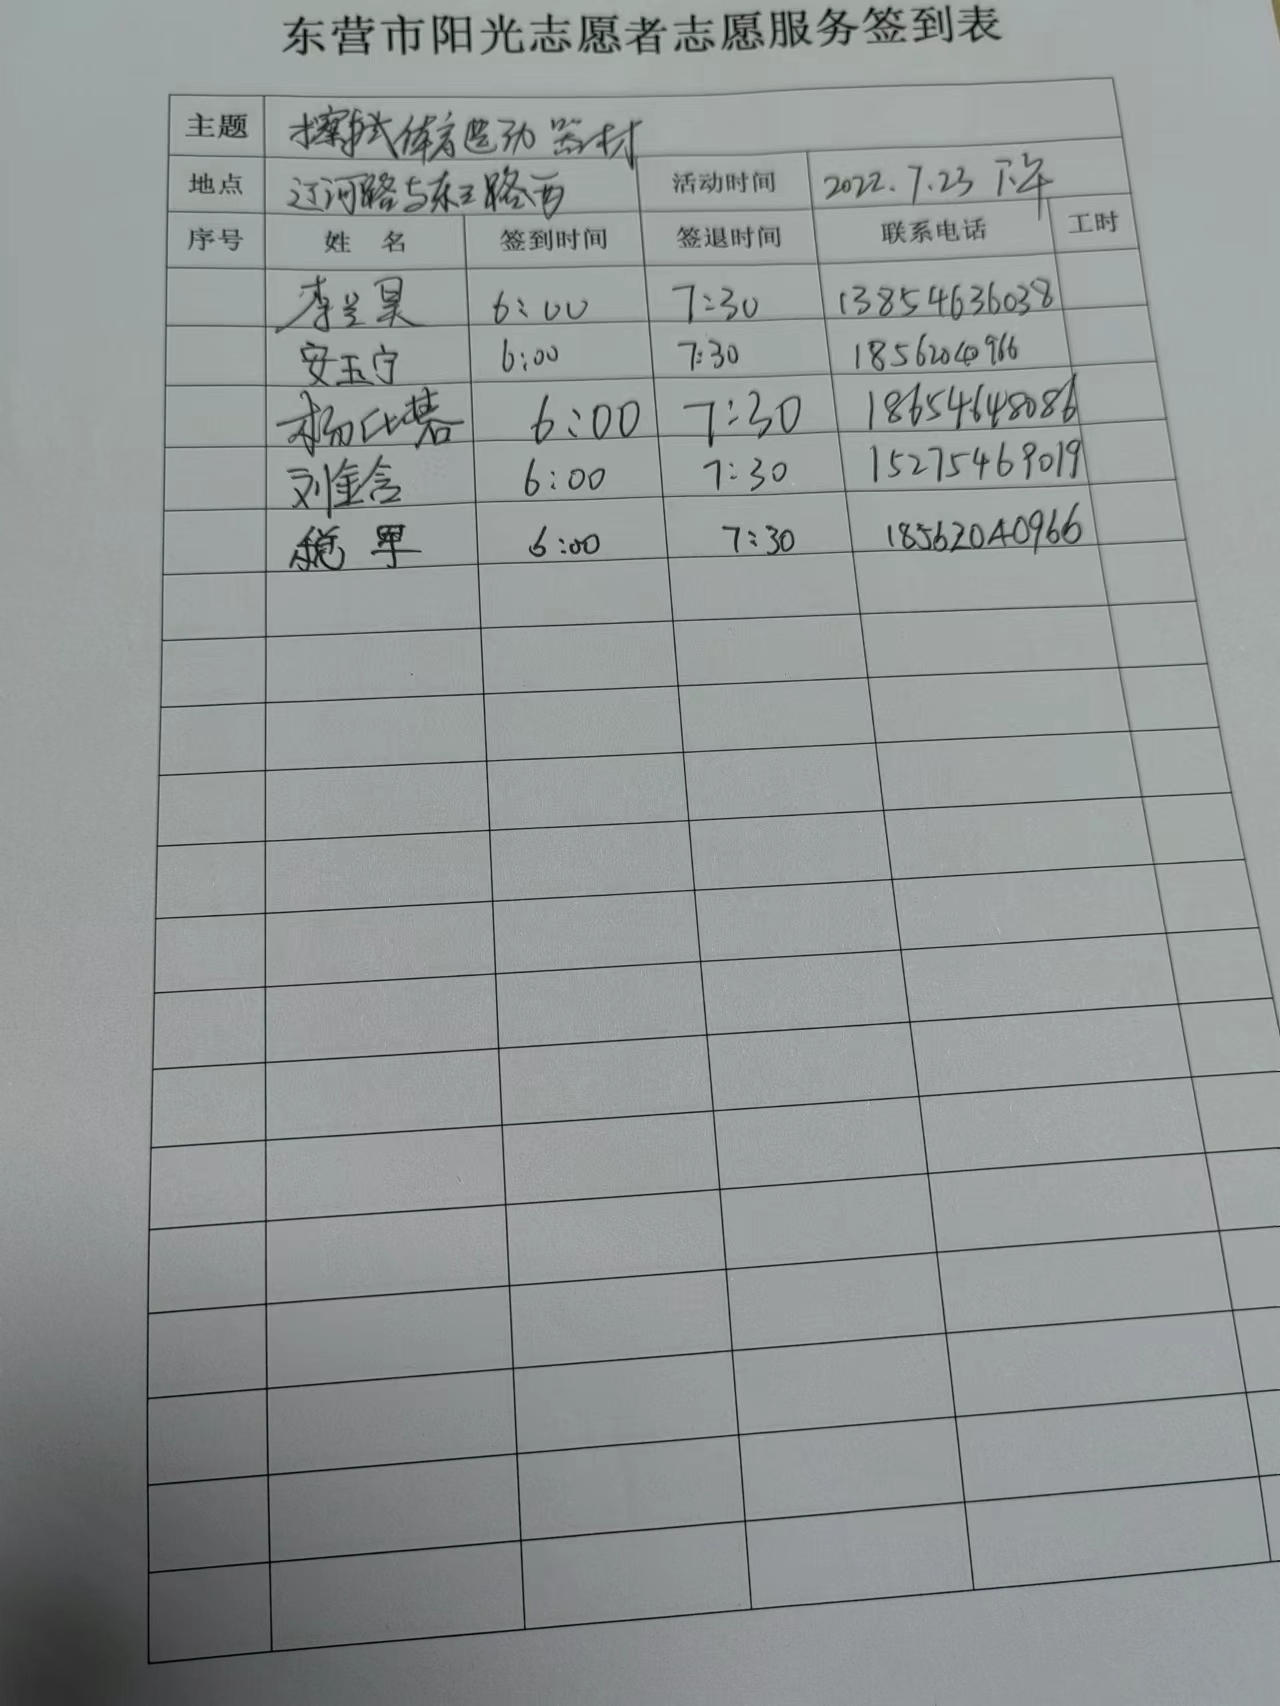 东营市阳光志愿者志愿服务签到表
主题 擦拭体育运动器材
地点 辽河路与东三路西 活动时间 2022.7.23 下午
序号 姓名 签到时间 签退时间 联系电话 工时
李兰昊 6:00 7:30 13854636038
安玉宁 6:00 7:30 18562040966
杨 6:00 7:30 18654648086
刘金含 6:00 7:30 15275469019
6:00 7:30 18562040966